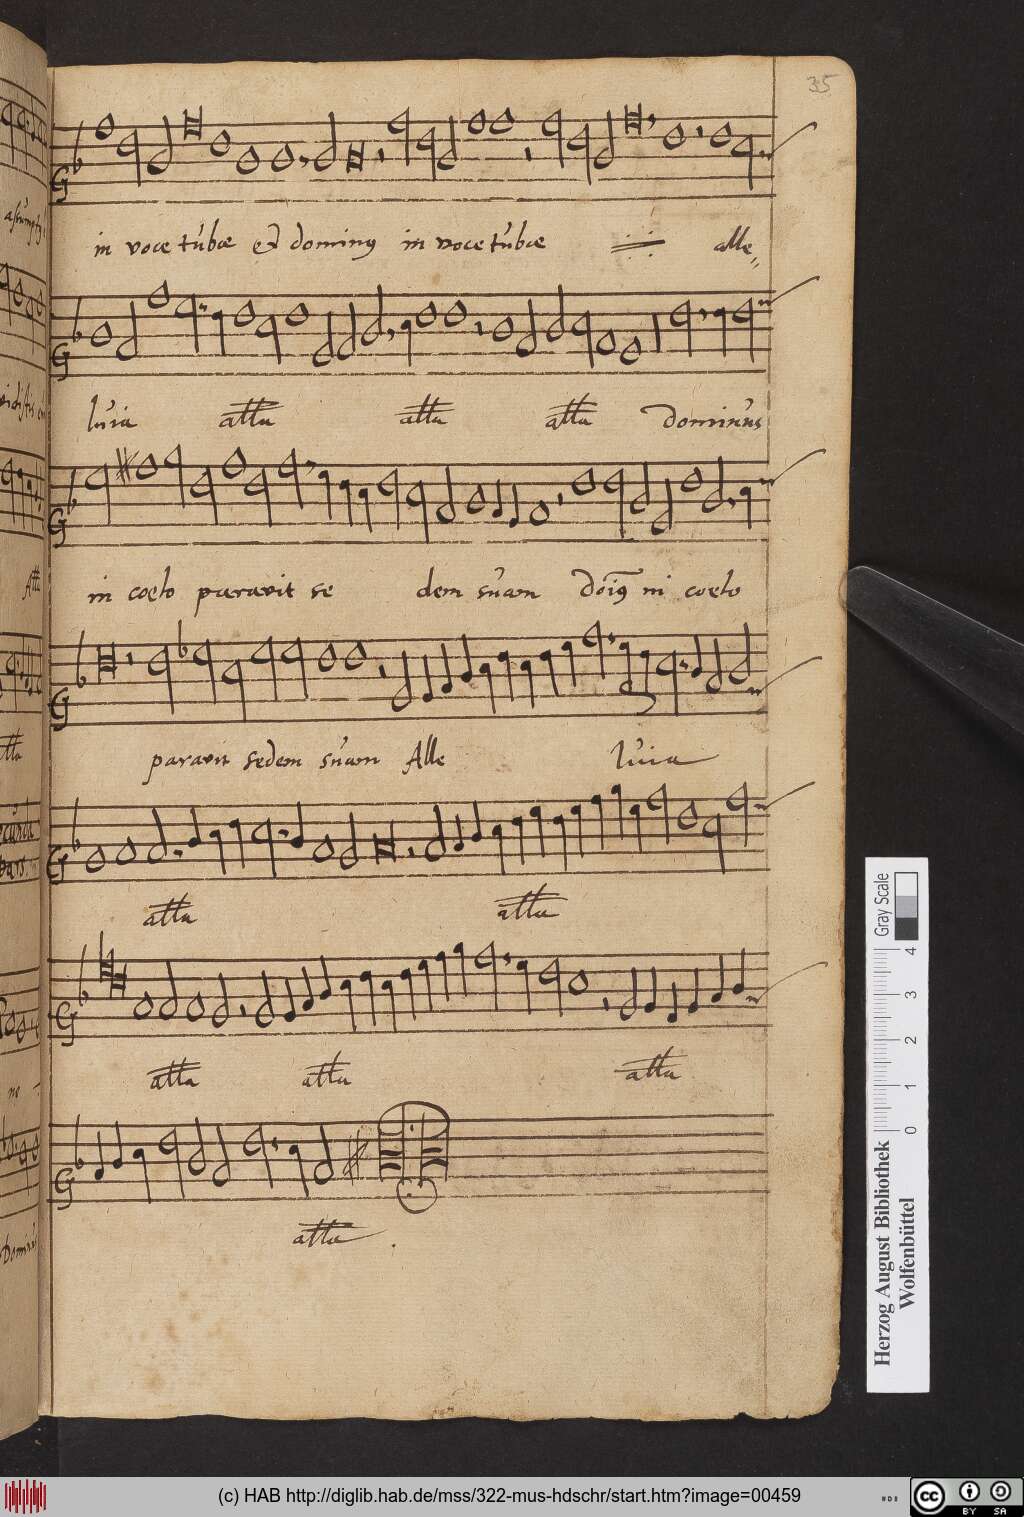 35
in voce tubæ et dominus in voce tubæ alle
luia alla alla alla dominus
in coelo paravit se dem suam Doīs ni coelo
paravit sedem suam Alle luia
alla alla
alla alla alla
alla
Gray Scale
0 1 2 3 4
Herzog August Bibliothek
Wolfenbüttel
(c) HAB http://diglib.hab.de/mss/322-mus-hdschr/start.htm?image=00459
cc BY SA